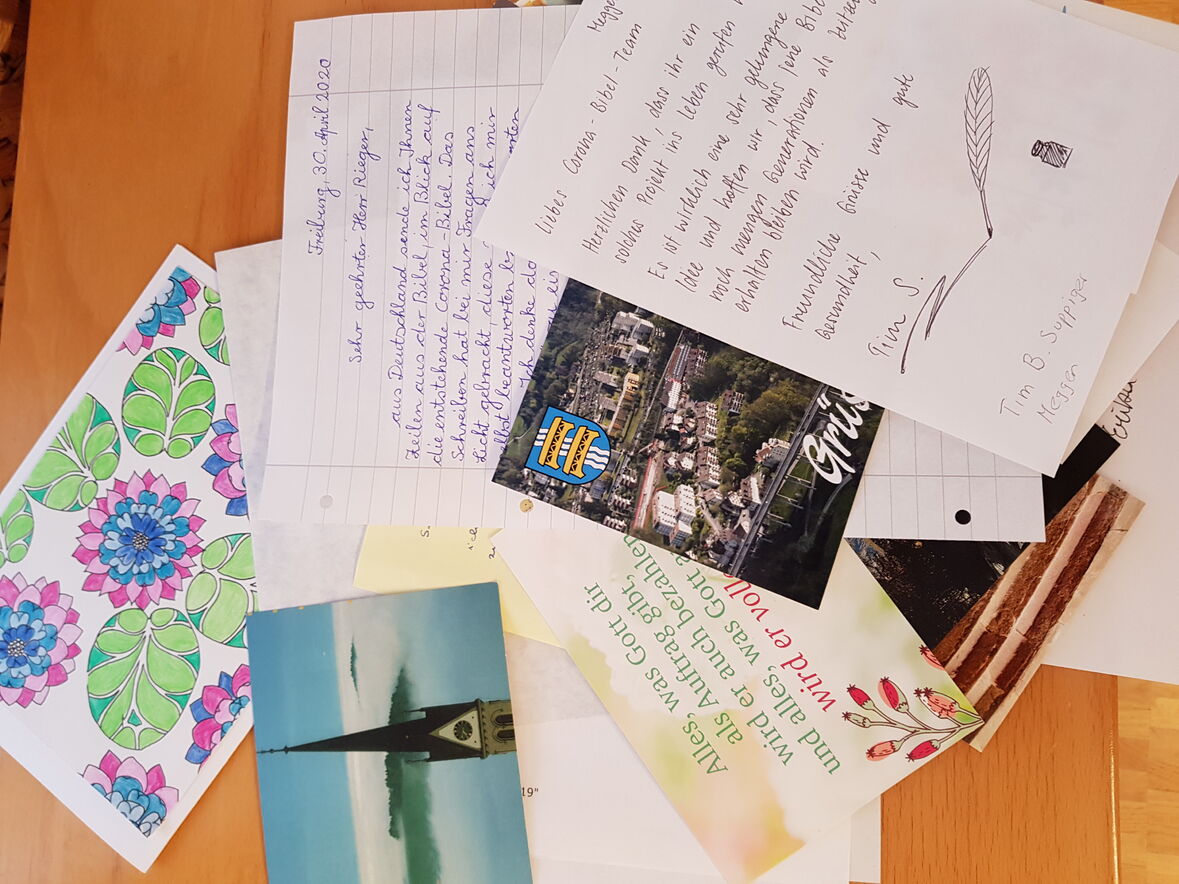 Freiburg, 30. April 2020
Sehr geehrter Herr Rieger,
aus Deutschland sende ich Ihnen
Zeilen aus der Bibel, im Blick auf
die entstehende Corona-Bibel. Das
Schreiben hat bei mir Fragen ans
Licht gebracht, diese
ich mir
selbst beantworten
Ich denke
Liebes Corona-Bibel-Team
Herzlichen Dank, dass ihr ein
solches Projekt ins leben gerufen
Es ist wirklich eine sehr gelungene
Idee und hoffen wir, dass jene Bibel
noch mengen Generationen als
erhalten bleiben wird.
Freundliche Grüsse und gute
Gesundheit,
Tim S.
Tim B. Suppiger
Meggen
Alles, was Gott dir
als Auftrag gibt,
wird er auch bezahlen
und alles, was Gott
wird er voll
19"